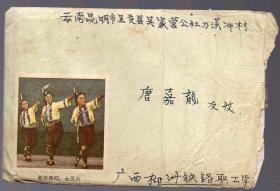 云南昆明市呈贡县吴家营公社万溪冲村
唐嘉龍 友收
女民兵
广西柳州铁路职工学